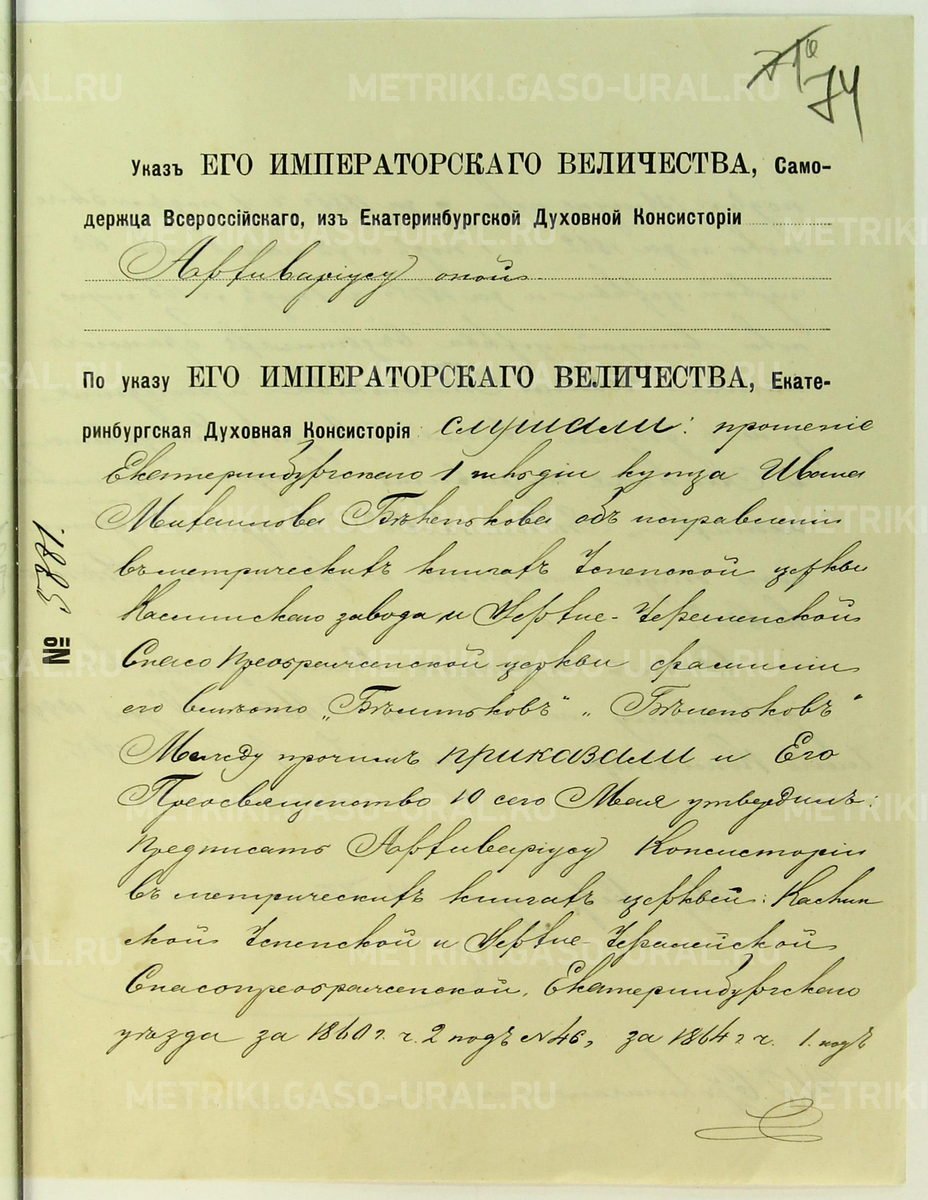 74
Указъ ЕГО ИМПЕРАТОРСКАГО ВЕЛИЧЕСТВА, Само-
держца Всероссійскаго, изъ Екатеринбургской Духовной Консисторіи
Архиваріусу оной
По указу ЕГО ИМПЕРАТОРСКАГО ВЕЛИЧЕСТВА, Екате-
ринбургская Духовная Консисторія слушали: прошеніе
Екатеринбургскаго 1 гильдіи купца Ивана
Михаилова Бѣленькова объ исправленіи
въ метрическихъ книгахъ Успенской церкви
Каслинскаго завода и Верхне-
Спасо Преображенской церкви фамиліи
его вмѣсто „Бѣлиньковъ" „Бѣленьковъ"
Между прочимъ приказали и Его
Преосвященство 10 сего Мая утвердилъ:
предписать Архиваріусу Консисторіи
въ метрическихъ книгахъ церквей: Каслин
ской Успенской и Верхне-
Спасопреображенской, Екатеринбургскаго
уѣзда за 1860 г. ч. 2 подъ № 46, за 1864 г. ч. 1. подъ
№ 5881.
METRIKI.GASO-URAL.RU